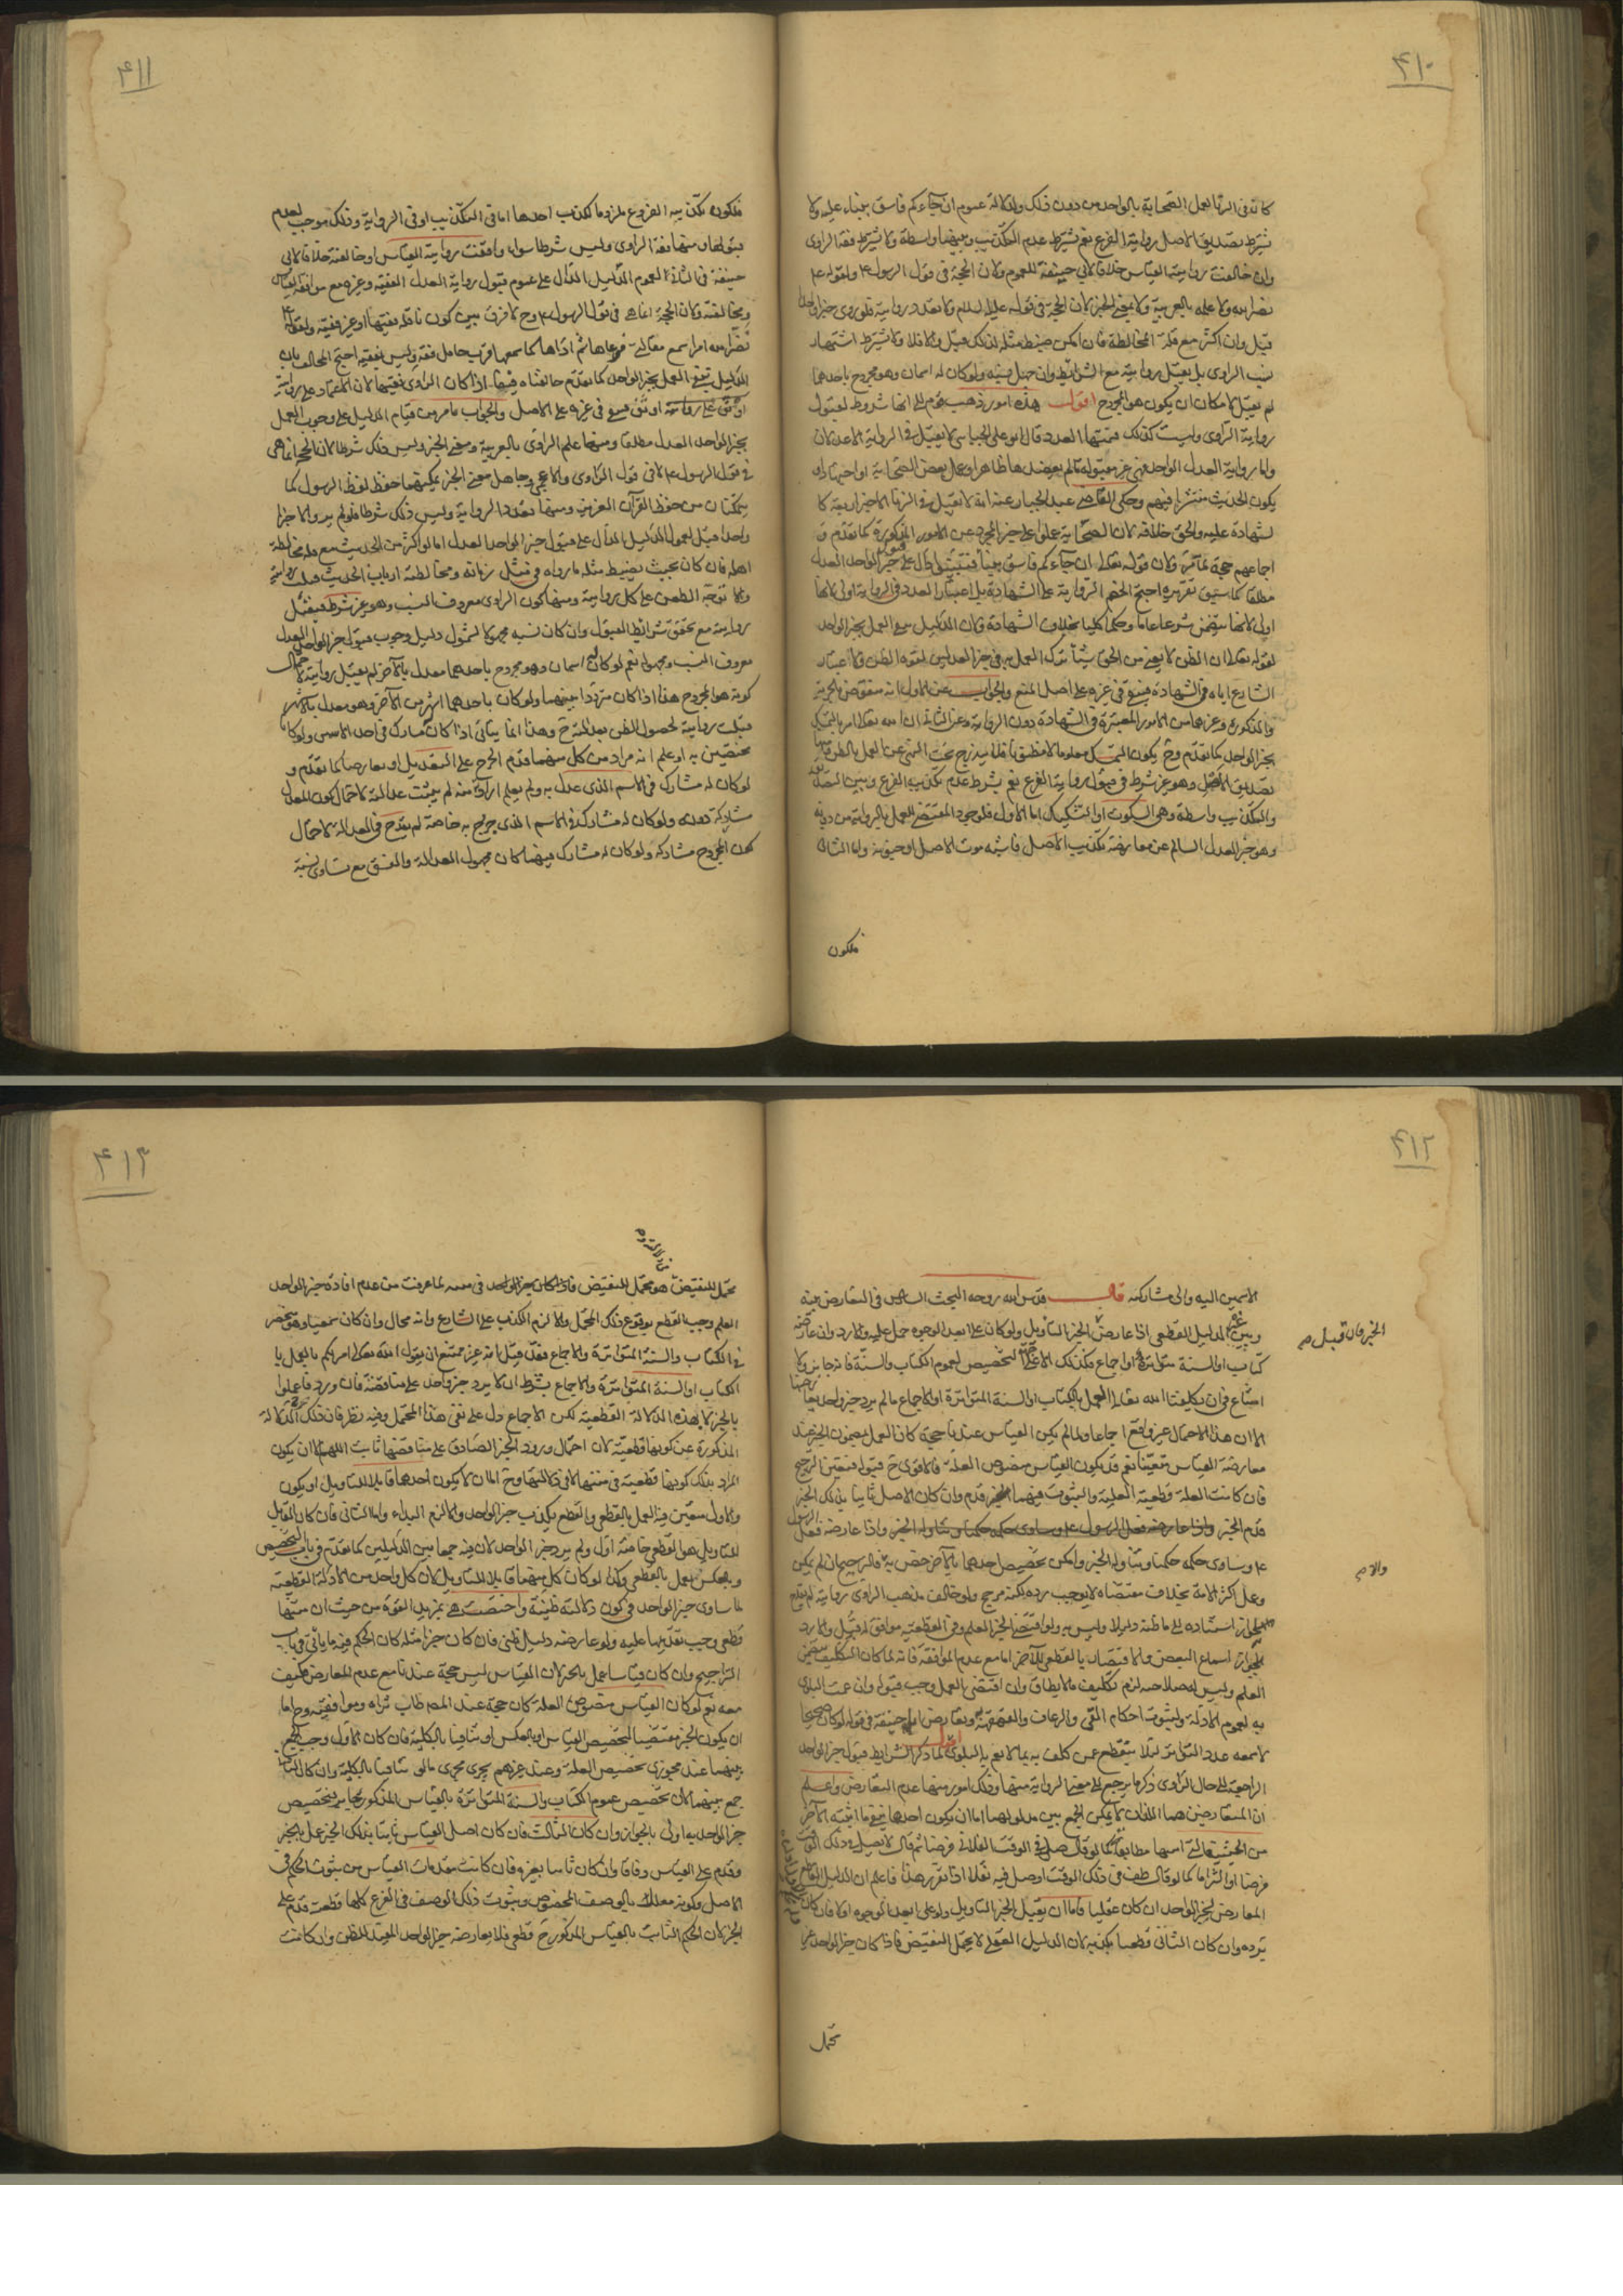 ٤١٠
كما له فى الزنا لعمل الصحابة بالواحد من دون ذلك ولدلالة عموم ان جاءكم فاسق بنباء عليه ولا
يشترط تصديق الاصل رواية الفرع نعم يشترط عدم التكذيب وبينهما واسطة ولا يشترط فقه الراوى
وان خالفت روايته القياس خلافا لابى حنيفة للعموم ولان الحجة فى قول الرسول ع ولقوله ع
نضر الله ولا علمه بالعربية ولا بمعنى الخبر لان الحجة فى قوله عليه السلام ولا تعدد روايته فلو روى خبرا واحدا
قبل وان اكثر مع قلة المخالطة فان امكن ضبط مثله لذلك قبل والا فلا ولا يشترط اشتهار
نسب الراوى بل يقبل روايته مع الشرائط وان جهل نسبه ولو كان له اسمان وهو مجروح باحدهما
لم يقبل لامكان ان يكون هو المجروح اقول هذه امور ذهب قوم الى انها شروط لقبول
رواية الراوى وليست كذلك فمنها العدد قال ابو على الجبائى لا يقبل فى الرواية الا عدلان
واما رواية العدل الواحد فهى غير مقبولة ما لم يعضدها ظاهر او عمل بعض الصحابة او اجتهاد او
يكون الحديث منتشرا فيهم وحكى القاضى عبد الجبار عنه انه لا يقبل فى الزنا الا خبر اربعة كا
لشهادة عليه والحق خلافه لان الصحابة عملوا على خبر المجرد عن الامور المذكورة كما تقدم و
اجماعهم حجة لما مر ولان قوله تعالى ان جاءكم فاسق بنبأ فتبينوا دال على قبول خبر الواحد العدل
مطلقا كما سبق تقريره احتج الخصم الرواية على الشهادة بل اعتبار العدد فى الرواية اولى لانها
اولى لانها يتضمن شرعا عاما وحكما كليا بخلاف الشهادة ولان الدليل ينفى العمل بخبر الواحد
لقوله تعالى ان الظن لا يغنى من الحق شيئا ترك العمل به فى خبر العدلين لقوة الظن ولاعتبار
الشارع اياه فى الشهادة فيبقى فى غيره على اصل المنع والجواب عن الاول انه منقوض بالحرية
والذكورة وغيرهما من الامور المعتبرة فى الشهادة دون الرواية وعن الثانى ان الله تعالى امر بالتمسك
بخبر الواحد كما تقدم وح يكون التمسك معلوما لا مظنونا فلا يندرج تحت النهى عن العمل بالظن ومنها
تصديق الاصل وهو غير شرط فى قبول رواية الفرع نعم يشترط عدم تكذيب الفرع وبين التصديق
والتكذيب واسطة وهى السكوت او التشكيك اما الاول فلوجود المقتضى للعمل بالرواية من دونه
وهو خبر العدل السالم عن معارضة تكذيب الاصل فاشبه موت الاصل او جنونه واما الثانى
فلكون
٤١١
فلكون تكذيبه الفرع ملزوما لكذب احدهما اما فى التكذيب او فى الرواية وذلك موجب لعدم
قبولها ومنها فقه الراوى وليس شرطا سواء وافقت روايته القياس او خالفته خلافا لابى
حنيفة فى الثانى لعموم الدليل الدال على عموم قبول رواية العدل الفقيه وغيره مع موافقة القياس
ومخالفته ولان الحجة انما هى فى قول الرسول ع وح لا فرق بين كون ناقله فقيها او غير فقيه ولقوله ع
نضر الله امرا سمع مقالتى فوعاها ثم اداها كما سمعها فرب حامل فقه وليس بفقيه احتج المخالف بان
الدليل ينفى العمل بخبر الواحد كما تقدم خالفناه فيما اذا كان الراوى فقيها لان الاعتماد على رواية
اوثق فيبقى فى غيره على الاصل والجواب ما مر من قيام الدليل على وجوب العمل
بخبر الواحد العدل مطلقا ومنها علم الراوى بالعربية ومعنى الخبر وليس ذلك شرطا لان الحجة انما هى
فى قول الرسول ع لا فى قول الراوى والاعجمى وجاهل معنى الخبر يمكنهما حفظ لفظ الرسول كما
يتمكنان من حفظ القرآن العزيز ومنها تعدد الرواية وليس ذلك شرطا فلو لم يرو الا خبرا
واحدا قبل لعموم الدليل الدال على قبول خبر الواحد العدل اما لو اكثر من الحديث مع قلة مخالطة
اهله فان كان بحيث يضبط مثله ما رواه فى مثل زمانه ومخالطته ارباب الحديث قبلت روايته
والا توجه الطعن على كل رواية ومنها كون الراوى معروف النسب وهو غير شرط فيقبل
روايته مع تحقق شرائط القبول وان كان نسبه مجهولا لشمول دليل وجوب قبول خبر الواحد العدل
معروف النسب ومجهوله نعم لو كان له اسمان وهو مجروح باحدهما معدل بالآخر لم يقبل روايته لاحتمال
كونه هو المجروح هذا اذا كان مترددا بينهما ولو كان باحدهما اشهر من الآخر وهو معدل بالاشهر
قبلت روايته لحصول الظن بعدالته ح وهذا انما يتأتى اذا كان له مشارك فى احد الاسمين ولو كانا
مختصين به او علم انه مراد من كل منهما قدم الجرح على التعديل او تعارضا كما تقدم و
لو كان له مشارك فى الاسم الذى عدل به ولم يعلم ارادته منه لم يثبت عدالته لاحتمال كون المعدل
مشاركه دونه ولو كان له مشارك فى الاسم الذى جرح به خاصة لم يقدح فى العدالة لاحتمال
كون المجروح مشاركه ولو كان له مشارك فيهما كان مجهول العدالة والفسق مع تساوى نسبة
٤١٢
الاسمين اليه والى مشاركه قال قدس الله روحه البحث السادس فى التعارض بينه
وبين غيره الدليل القطعى اذا عارض الخبر التأويل ولو كان على ابعد الوجوه حمل عليه والا رد وان عارضه
الخبر فان قبل م
كتاب او السنة متواترة او اجماع فكذلك الا على التخصيص لعموم الكتاب والسنة فانه جايز ولا
امتناع فى ان يكلفنا الله تعالى العمل بالكتاب او السنة المتواترة او الاجماع ما لم يرد خبر واحد يعارضها
الا ان هذا الاحتمال غير واقع اجماعا ولما لم يكن القياس عندنا حجة كان العمل بمضمون الخبر عند
معارضة القياس متعينا نعم قد يكون القياس منصوص العلة فالاقوى ح قبوله فتعين الترجيح
فان كانت العلة قطعية العلية والثبوت فيهما قدم وان كان الاصل ثابتا بذلك الخبر
قدم الخبر واذا عارضه فعل الرسول
ع وساوى حكمه حكمنا وتناوله الخبر وامكن تخصيص احدهما بالآخر خص به فالترجيح ان لم يكن
والا م
وعمل اكثر الامة بخلاف مقتضاه لا يوجب رده لكنه مرجح ولو خالف مذهب الراوى روايته لم يقدح
لجواز استناده الى ما ظنه دليلا وليس به ولو اقتضى الخبر العلم وفى القطعية موافق له قبل والا رد
لجواز اسماع البعض والاقتصار بالقطعى للآخر اما مع عدم الموافقة فانه لما كان التكليف يتضمن
العلم وليس له صلاحيته لزم تكليف ما لا يطاق وان اقتضى العمل وجب قبوله وان عمت البلوى
به لعموم الادلة ولثبوت احكام القى والرعاف والقهقهة به ويعارض ابا حنيفة فى قوله لو كان صحيحا
لاسمعه عدد التواتر لئلا ينقطع عمن كلف به بما لا يعم به البلوى اقول لما ذكر الشرايط قبول خبر الواحد
الراجعة الى حال الراوى ذكر ما يرجع الى معنى الرواية منها وذلك امور منها عدم التعارض واعلم
ان المتعارضين هما اللذان لا يمكن الجمع بين مدلولهما اما ان يكون احدهما ينفى ما اثبته الآخر
من الحيثية التى اثبتها مطابقة كما لو قال صلى فى الوقت الفلانى فرضا ثم قال لا يصلى فى ذلك الوقت
فرضا او التزاما كما لو قال طف فى ذلك الوقت او صل فيه نفلا اذا تقرر هذا فاعلم ان الدليل القاطع
المعارض لخبر الواحد ان كان عقليا فاما ان يقبل الخبر التأويل ولو على ابعد الوجوه اولا فان كان
يرده وان كان الثانى قطعنا بكذبه لان الدليل العقلى لا يحتمل النقيض فاذا كان خبر الواحد غير
محتمل
٤١٣
محتمل للنقيض هو محتمل للنقيض فاذا كان خبر الواحد فى نفسه لما عرفت من عدم افادة خبر الواحد
العلم وجب القطع بوقوع ذلك المحتمل والا لزم الكذب على الشارع وانه محال وان كان سمعيا وهو منحصر
فى الكتاب والسنة المتواترة والاجماع فقد قيل انه غير ممتنع ان يقول الله تعالى امرتكم بالعمل با
الكتاب او السنة المتواترة والاجماع بشرط ان لا يرد خبر واحد على مناقضته فان ورد فاعملوا
بالخبر لا بهذه الدلالة القطعية لكن الاجماع دل على نفى هذا المحتمل وفيه نظر فان ذلك الدلالة
المذكورة عن كونها قطعية لان احتمال ورود الخبر الصادق على مناقضتها ثابت اللهم الا ان يكون
المراد بذلك كونها قطعية فى متنها لا فى دلالتها وح اما ان لا يكون احدهما قابلا للتأويل او يكون
والاول متعين فيه العمل بالقطعى والقطع بكذب خبر الواحد والا لزم البداء واما الثانى فان كان القابل
للتأويل هو القطعى خاصة اول ولم يرد خبر الواحد لان فيه جمعا بين الدليلين كما تقدم فى باب التخصيص
وبالعكس يعمل بالقطعى وكذا لو كان كل منهما قابلا للتأويل لان كل واحد من الادلة القطعية
لما ساوى خبر الواحد فى كون دلالته ظنية واختصت هى بمزيد القوة من حيث ان متنها
قطعى وجب تقديمها عليه ولو عارضه دليل ظنى فان كان خبرا مثله كان الحكم فيه ما يأتى فى باب
التراجيح وان كان قياسا عمل بالخبر لان القياس ليس حجة عندنا مع عدم المعارض فكيف
معه نعم لو كان القياس منصوص العلة كان حجة عند المصنف طاب ثراه وموافقيه وح اما
ان يكون الخبر مقتضيا لتخصيص القياس او بالعكس او متنافيا بالكلية فان كان الاول وجب الجمع
بينهما عند مجوزى تخصيص العلة وعند غيرهم يجرى مجرى ما لو تنافيا بالكلية وان كان الثانى
جمع بينهما لان تخصيص عموم الكتاب والسنة المتواترة بالقياس المذكور جايز فتخصيص
خبر الواحد به اولى بالجواز وان كان الثالث فان كان اصل القياس ثابتا بذلك الخبر عمل بالخبر
وقدم على القياس وفاقا وان كان ثابتا بغيره فان كانت مقدمات القياس من ثبوت الحكم فى
الاصل وكونه معللا بالوصف المخصوص وثبوت ذلك الوصف فى الفرع كلها قطعية قدم على
الخبر لان الحكم الثابت بالقياس المذكور ح قطعى فلا يعارضه خبر الواحد المفيد للظن وان كانت